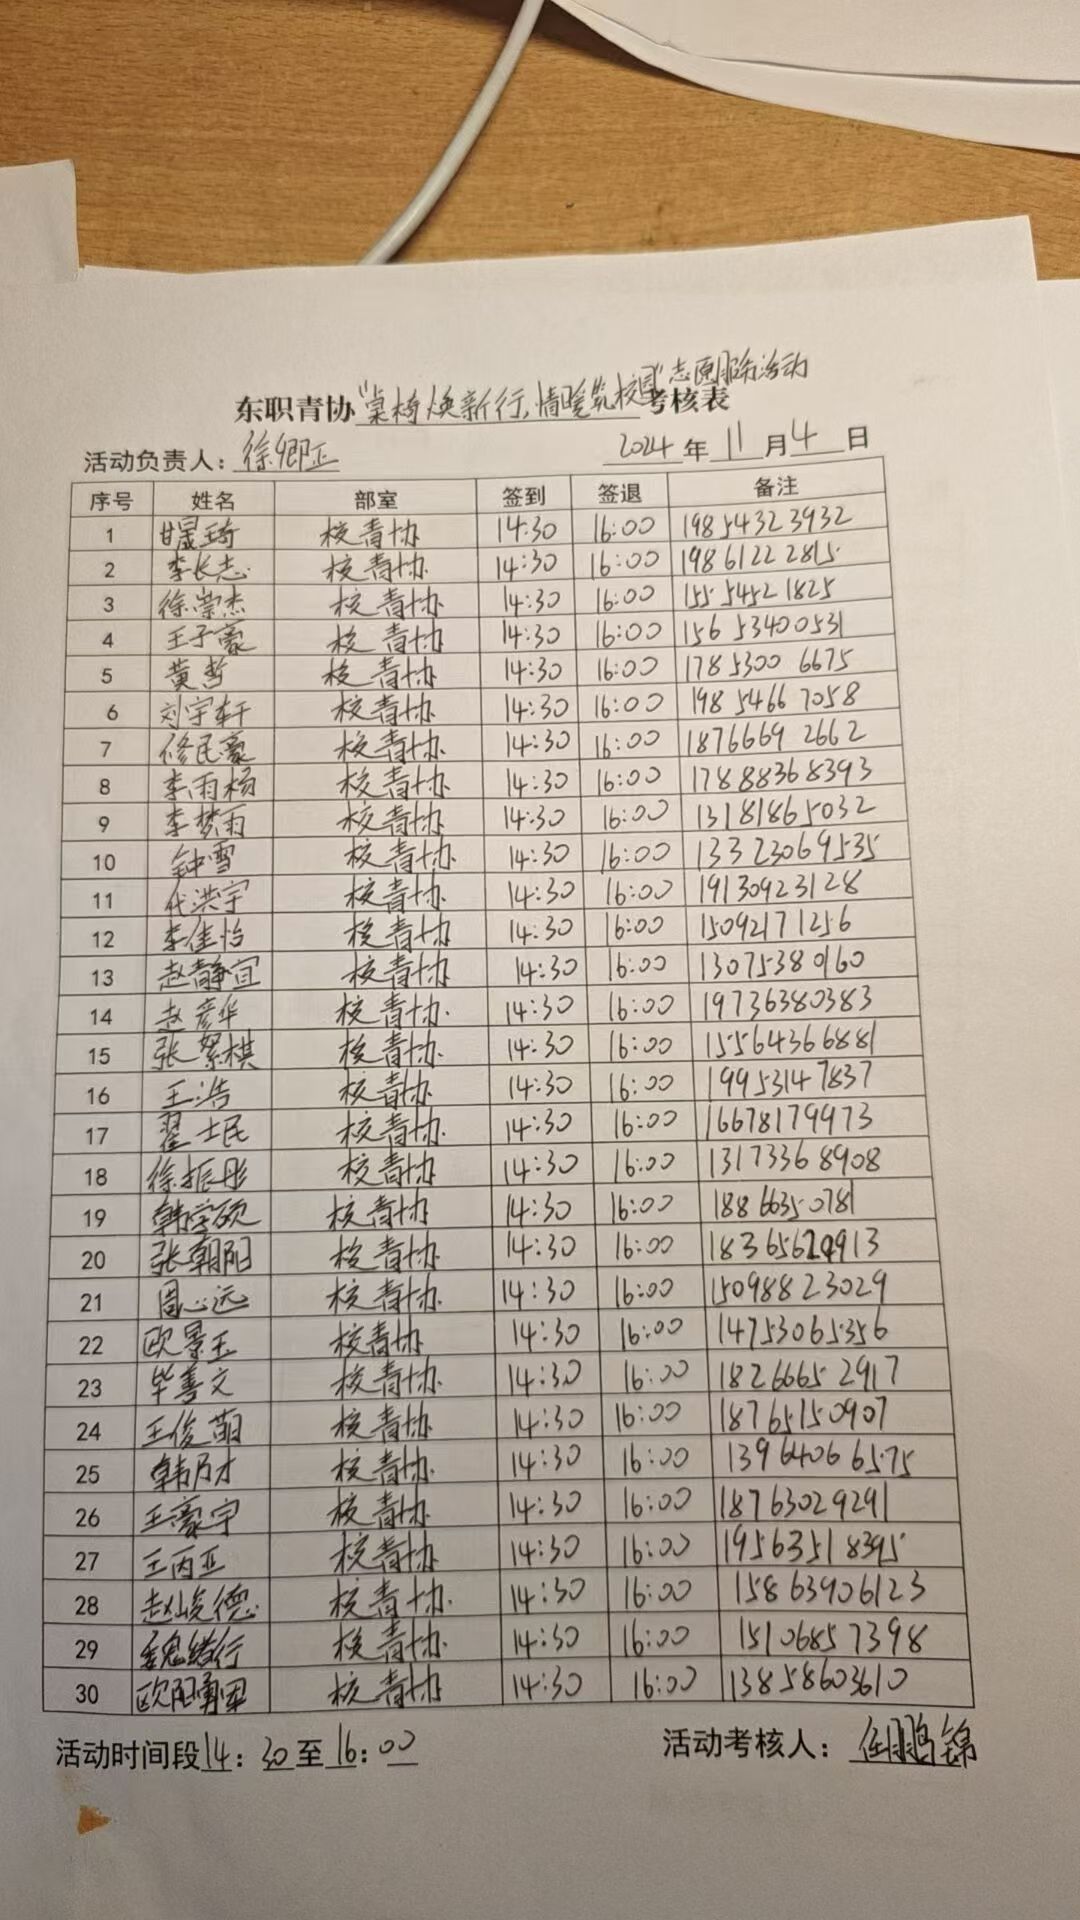 东职青协"桌椅焕新行,情暖筑校园"志愿服务活动考核表
活动负责人:徐卿正 2024年11月4日
序号 姓名 部室 签到 签退 备注
1 甘晟琦 校青协 14:30 16:00 19854323932
2 李长志 校青协 14:30 16:00 19861222815
3 徐崇杰 校青协 14:30 16:00 15554521825
4 王子豪 校青协 14:30 16:00 15653400531
5 黄哲 校青协 14:30 16:00 17853006675
6 刘宇轩 校青协 14:30 16:00 19854667058
7 修民豪 校青协 14:30 16:00 18766692662
8 李雨杨 校青协 14:30 16:00 17888368393
9 李梦雨 校青协 14:30 16:00 13181865032
10 钟雪 校青协 14:30 16:00 13323069535
11 代洪宇 校青协 14:30 16:00 19130923128
12 李佳怡 校青协 14:30 16:00 15092171256
13 赵静宜 校青协 14:30 16:00 13075380160
14 赵彦华 校青协 14:30 16:00 19736380383
15 张絮棋 校青协 14:30 16:00 15564366881
16 王浩 校青协 14:30 16:00 19953147837
17 翟士民 校青协 14:30 16:00 16678179973
18 徐振彤 校青协 14:30 16:00 13173368908
19 韩学硕 校青协 14:30 16:00 18866350781
20 张朝阳 校青协 14:30 16:00 18365624913
21 周心远 校青协 14:30 16:00 15098823029
22 欧景玉 校青协 14:30 16:00 14753065356
23 毕善文 校青协 14:30 16:00 18266652917
24 王俊萌 校青协 14:30 16:00 18765150907
25 韩乃才 校青协 14:30 16:00 13964066575
26 王豪宇 校青协 14:30 16:00 18763029291
27 王丙亚 校青协 14:30 16:00 19563518395
28 赵峻德 校青协 14:30 16:00 15863906123
29 魏绪行 校青协 14:30 16:00 15106857398
30 欧阳勇军 校青协 14:30 16:00 13858603610
活动时间段14:30至16:00 活动考核人:任鹏锦